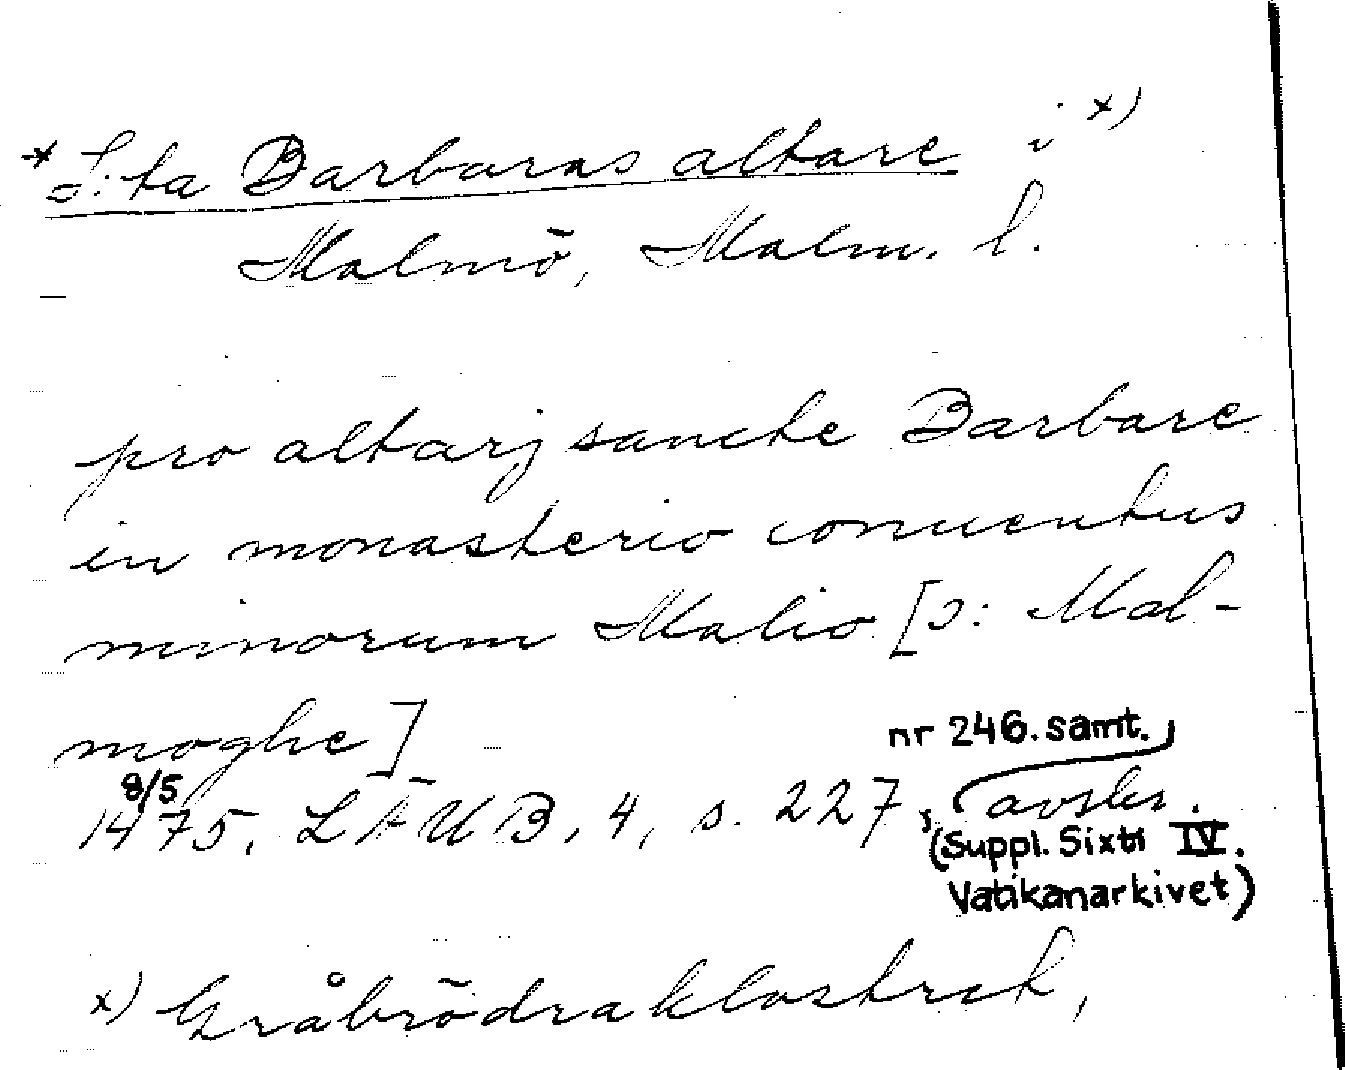 * S:ta Barbaras altare i x)
Malmö, Malm. l.
pro altarj sancte Barbare
in monasterio conuentus
minorum Malio [ɔ: Mal-
moghe]
nr 246. samt.
8/5
1475, LÄUB, 4, s. 227, avskr.
(Suppl. Sixti IV.
Vatikanarkivet)
x) Gråbrödraklostret,